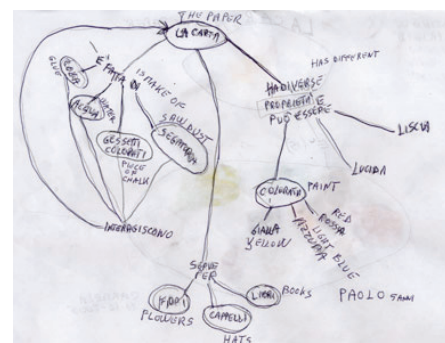 THE PAPER
LA CARTA
E'
FATTA DI
IS MAKE OF
GLUE
ACQUA
WATER
GESSETTI
COLORATI
PIECE
OF
CHALK
SAWDUST
SEGATURA
INTERAGISCONO
HAS DIFFERENT
HA DIVERSE
PROPRIETA' E
PUO' ESSERE
LISCIA
LUCIDA
COLORATA
PAINT
GIALLA
YELLOW
AZZURRA
LIGHT BLUE
ROSSA
RED
SERVE
PER
FIORI
FLOWERS
CAPPELLI
HATS
LIBRI
BOOKS
PAOLO 5 ANNI